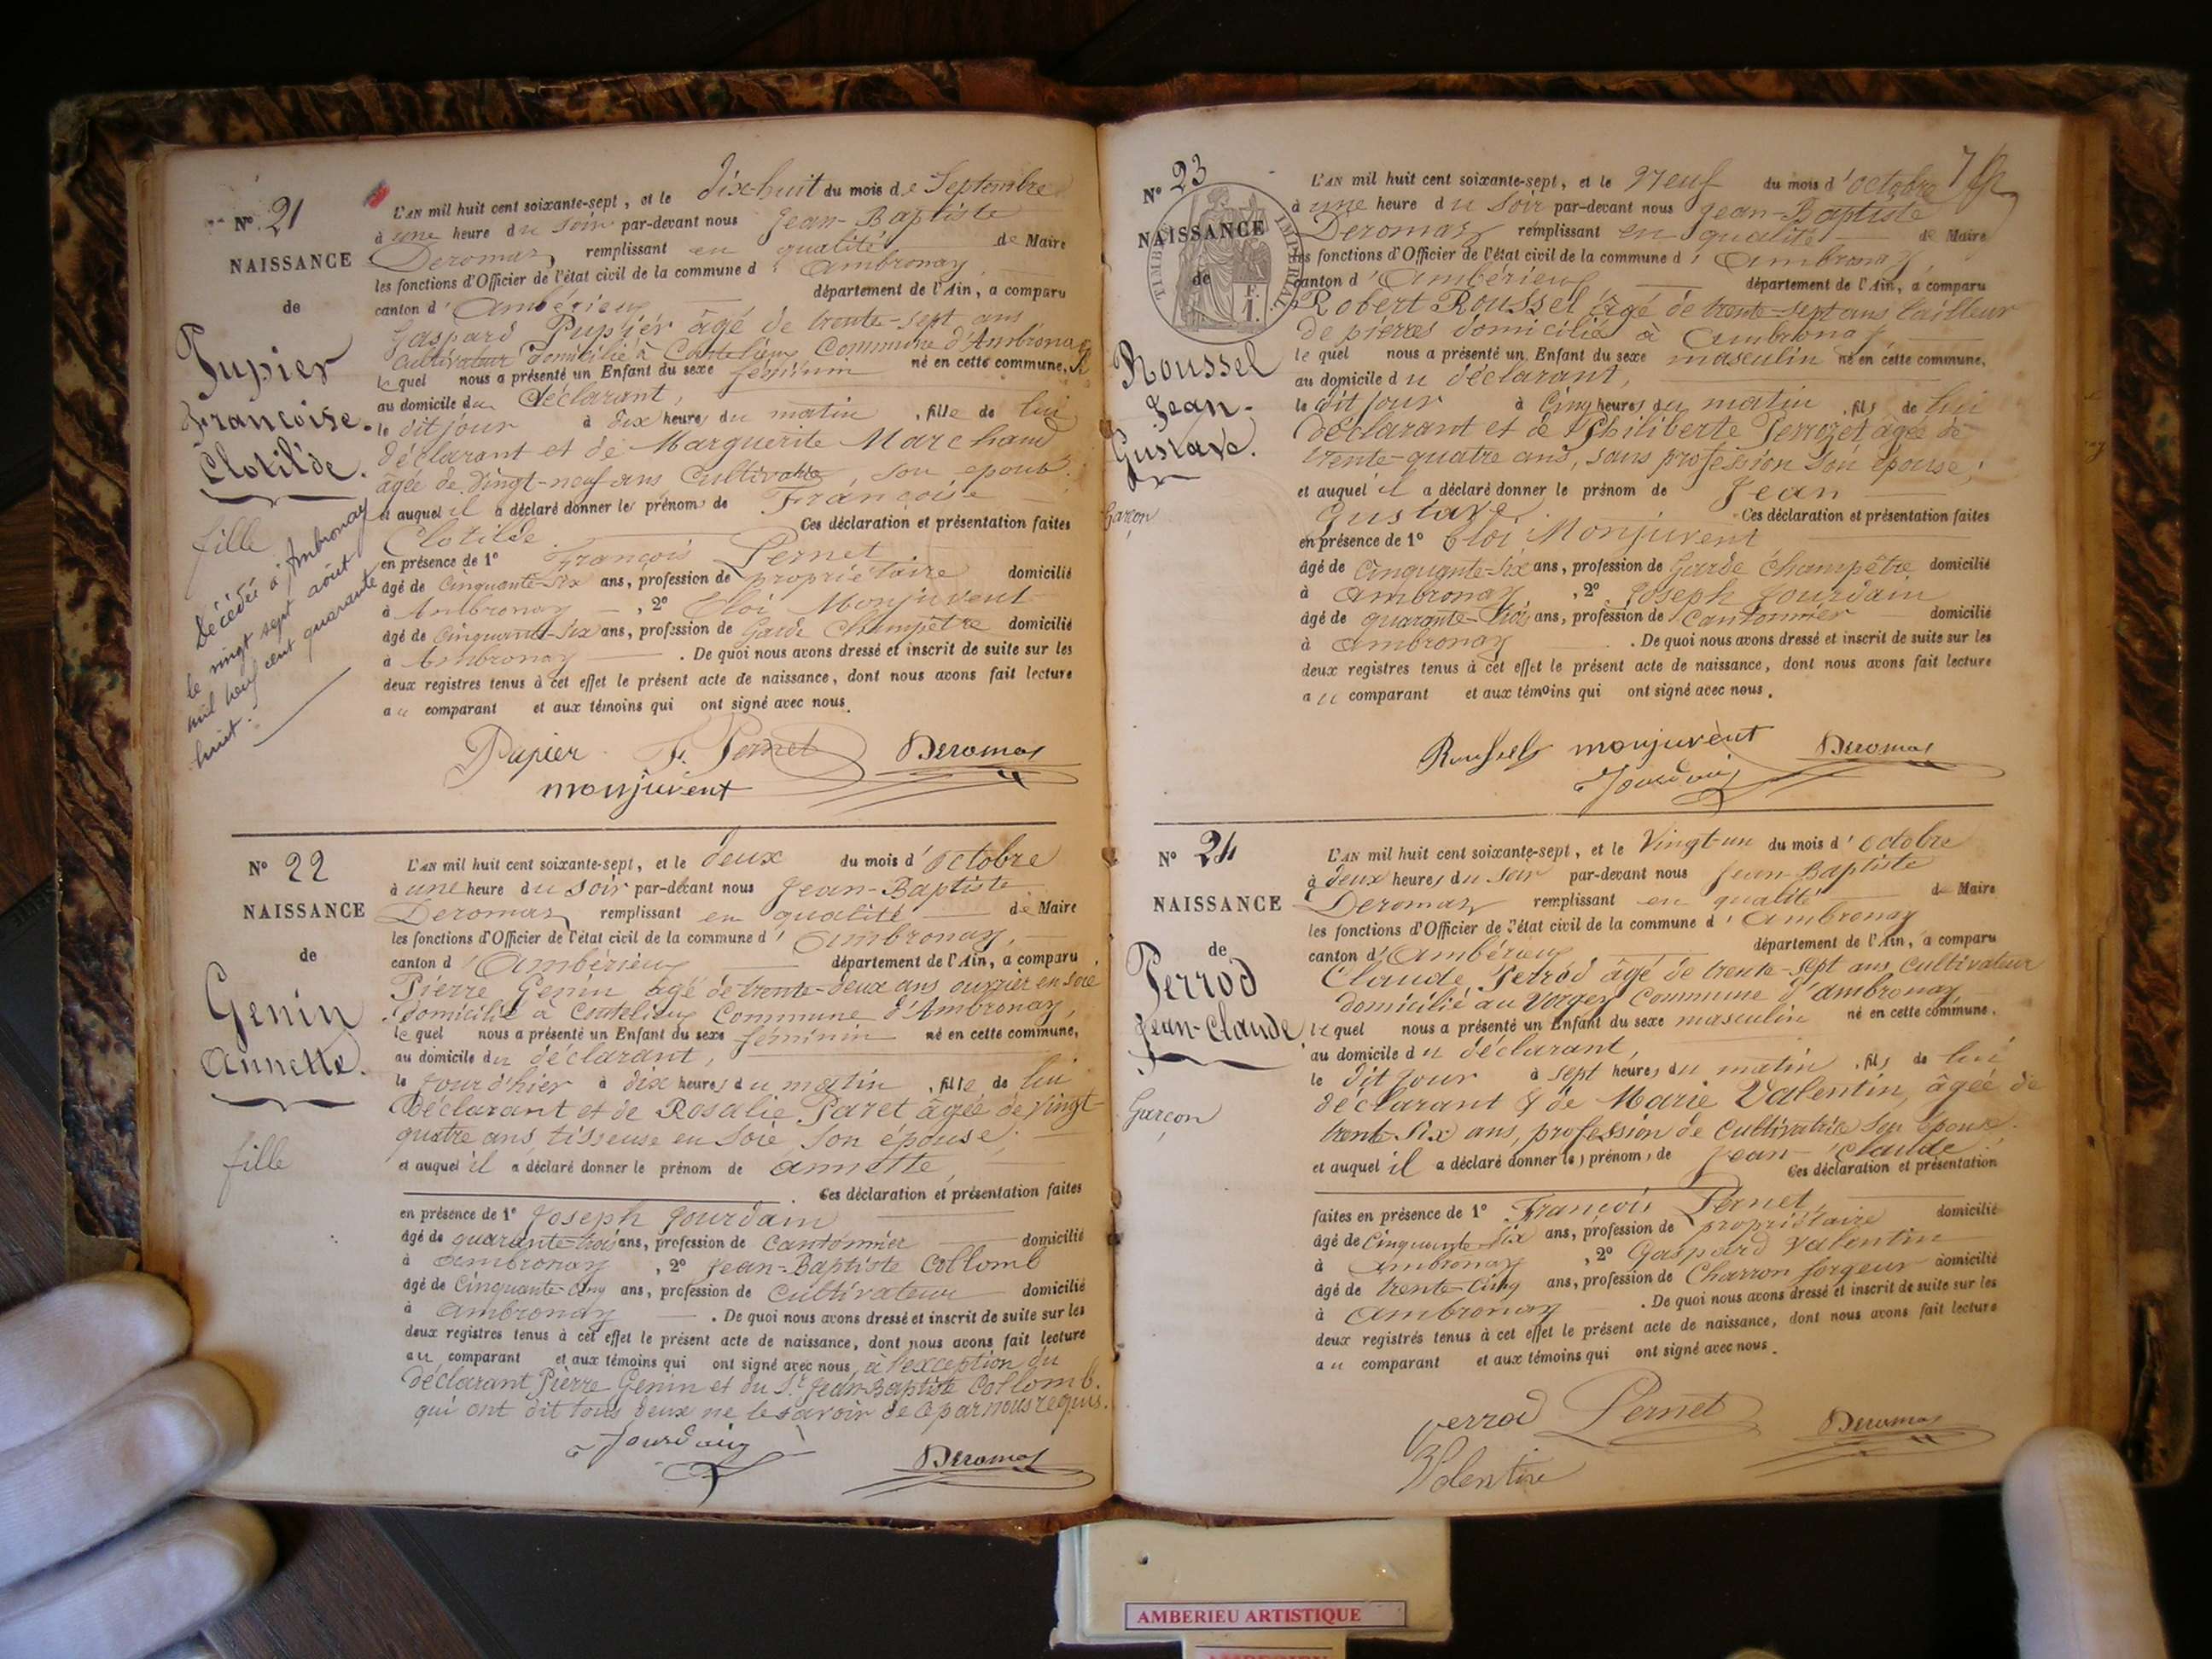 N° 21
NAISSANCE
de
Pupier
Françoise
Clotilde.
fille
Décédée à Ambronay
le vingt sept août
mil neuf cent quarante
huit.
L'AN mil huit cent soixante-sept, et le dix-huit du mois de Septembre
à une heure du soir par-devant nous Jean-Baptiste
Deromas remplissant en qualité de Maire
les fonctions d'Officier de l'état civil de la commune d'Ambronay,
canton d'Ambérieu département de l'Ain, a comparu
Gaspard Pupier âgé de trente-sept ans
cultivateur domicilié à Coutelieu Commune d'Ambronay
lequel nous a présenté un Enfant du sexe féminin né en cette commune,
au domicile du déclarant,
le dit jour à dix heures du matin, fille de lui
déclarant et de Marguerite Marchand
âgée de vingt-neuf ans Cultivatrice, son épouse.
et auquel il a déclaré donner les prénom de Françoise
Clotilde Ces déclaration et présentation faites
en présence de 1° François Pernet
âgé de Cinquante-six ans, profession de propriétaire domicilié
à Ambronay, 2° Eloi Monjuvent
âgé de Cinquante-six ans, profession de Garde Champêtre domicilié
à Ambronay. De quoi nous avons dressé et inscrit de suite sur les
deux registres tenus à cet effet le présent acte de naissance, dont nous avons fait lecture
au comparant et aux témoins qui ont signé avec nous.
Pupier F. Pernet Deromas
monjuvent
N° 22
NAISSANCE
de
Genin
Annette.
fille
L'AN mil huit cent soixante-sept, et le deux du mois d'octobre
à une heure du soir par-devant nous Jean-Baptiste
Deromas remplissant en qualité de Maire
les fonctions d'Officier de l'état civil de la commune d'Ambronay,
canton d'Ambérieu département de l'Ain, a comparu
Pierre Genin âgé de trente-deux ans ouvrier en soie
domicilié à Coutelieu Commune d'Ambronay,
lequel nous a présenté un Enfant du sexe féminin né en cette commune,
au domicile du déclarant,
le jour d'hier à dix heures du matin, fille de lui
Déclarant et de Rosalie Paret âgée de vingt-
quatre ans tisseuse en soie, son épouse,
et auquel il a déclaré donner le prénom de annette,
Ces déclaration et présentation faites
en présence de 1° Joseph Jourdain
âgé de quarante-trois ans, profession de Cantonnier domicilié
à Ambronay, 2° Jean-Baptiste Collomb
âgé de Cinquante-cinq ans, profession de Cultivateur domicilié
à Ambronay. De quoi nous avons dressé et inscrit de suite sur les
deux registres tenus à cet effet le présent acte de naissance, dont nous avons fait lecture
au comparant et aux témoins qui ont signé avec nous, à l'exception du
déclarant Pierre Genin et du Sr Jean-Baptiste Collomb.
qui ont dit tous deux ne le savoir de ce par nous requis.
Jourdain Deromas
N° 23
NAISSANCE
de
TIMBRE IMPERIAL
F.
1.
Roussel
Jean-
Gustave.
Garçon
L'AN mil huit cent soixante-sept, et le Neuf du mois d'octobre 7
à une heure du soir par-devant nous Jean-Baptiste
Deromas remplissant en qualité de Maire
les fonctions d'Officier de l'état civil de la commune d'Ambronay
canton d'Ambérieu département de l'Ain, a comparu
Robert Roussel âgé de trente-sept ans tailleur
de pierres domicilié à Ambronay
lequel nous a présenté un Enfant du sexe masculin né en cette commune,
au domicile du déclarant,
le dit jour à Cinq heures du matin, fils de lui
déclarant et de Philiberte Perrozet âgée de
trente-quatre ans, sans profession son épouse,
et auquel il a déclaré donner le prénom de Jean
Gustave Ces déclaration et présentation faites
en présence de 1° Eloi Monjuvent
âgé de Cinquante-six ans, profession de Garde Champêtre domicilié
à Ambronay, 2° Joseph Jourdain
âgé de quarante-trois ans, profession de Cantonnier domicilié
à Ambronay. De quoi nous avons dressé et inscrit de suite sur les
deux registres tenus à cet effet le présent acte de naissance, dont nous avons fait lecture
au comparant et aux témoins qui ont signé avec nous.
Roussel monjuvent Deromas
Jourdain
N° 24
NAISSANCE
de
Perrod
Jean-Claude.
Garçon
L'AN mil huit cent soixante-sept, et le Vingt-un du mois d'octobre
à deux heures du soir par-devant nous Jean-Baptiste
Deromas remplissant en qualité de Maire
les fonctions d'Officier de l'état civil de la commune d'Ambronay
canton d'Ambérieu département de l'Ain, a comparu
Claude Perrod âgé de trente-sept ans, cultivateur
domicilié au Vorgey Commune d'Ambronay
lequel nous a présenté un Enfant du sexe masculin né en cette commune,
au domicile du déclarant,
le dit jour à sept heures du matin, fils de lui
déclarant & de Marie Valentin, âgée de
trente-six ans, profession de Cultivatrice son épouse.
et auquel il a déclaré donner les prénoms de Jean-Claude.
Ces déclaration et présentation
faites en présence de 1° François Pernet, domicilié
âgé de Cinquante-six ans, profession de propriétaire
à Ambronay, 2° Gaspard Valentin
âgé de trente-cinq ans, profession de Charron forgeur domicilié
à Ambronay. De quoi nous avons dressé et inscrit de suite sur les
deux registres tenus à cet effet le présent acte de naissance, dont nous avons fait lecture
au comparant et aux témoins qui ont signé avec nous.
perrod Pernet Deromas
Valentin
AMBERIEU ARTISTIQUE
AMBERIEU